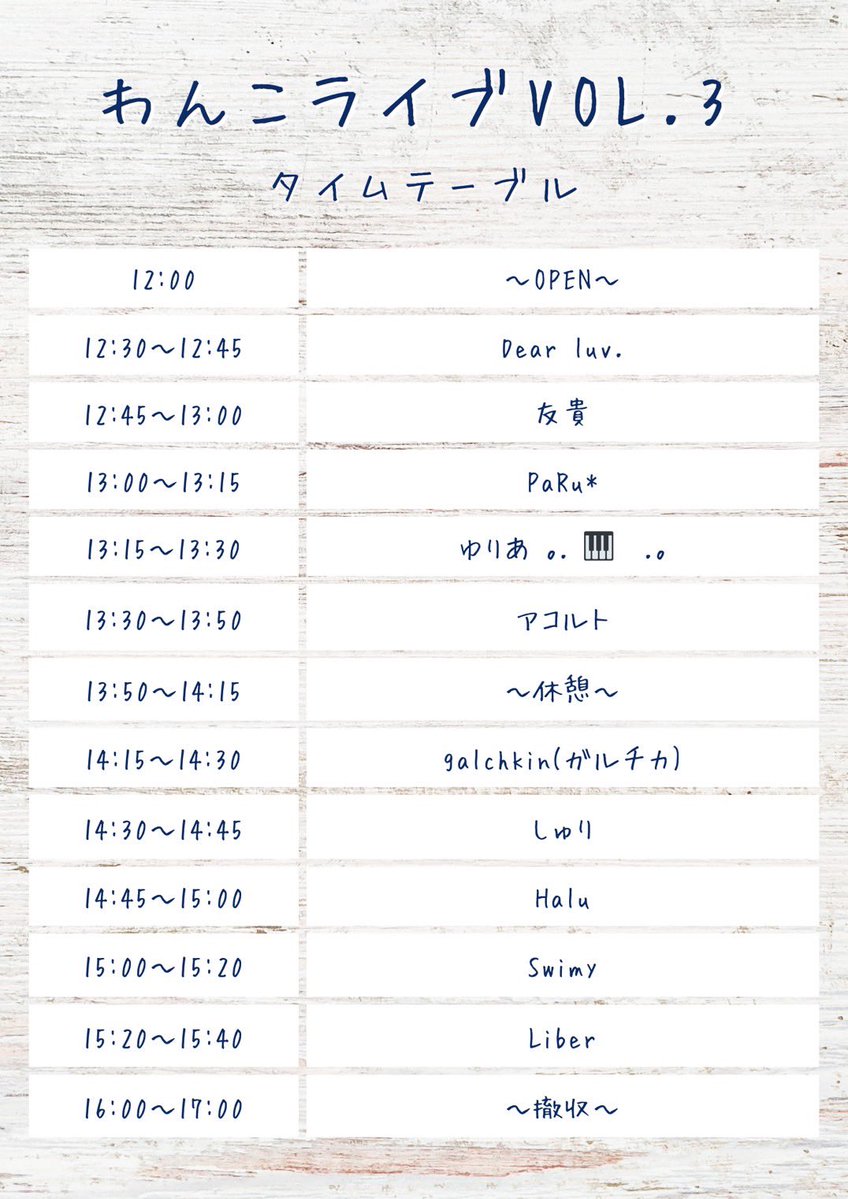 わんこライブVOL.3
タイムテーブル
12:00 ～OPEN～
12:30～12:45 Dear luv.
12:45～13:00 友貴
13:00～13:15 PaRu*
13:15～13:30 ゆりあ 。. 🎹 .。
13:30～13:50 アコルト
13:50～14:15 ～休憩～
14:15～14:30 galchkin(ガルチカ)
14:30～14:45 しゅり
14:45～15:00 Halu
15:00～15:20 Swimy
15:20～15:40 Liber
16:00～17:00 ～撤収～